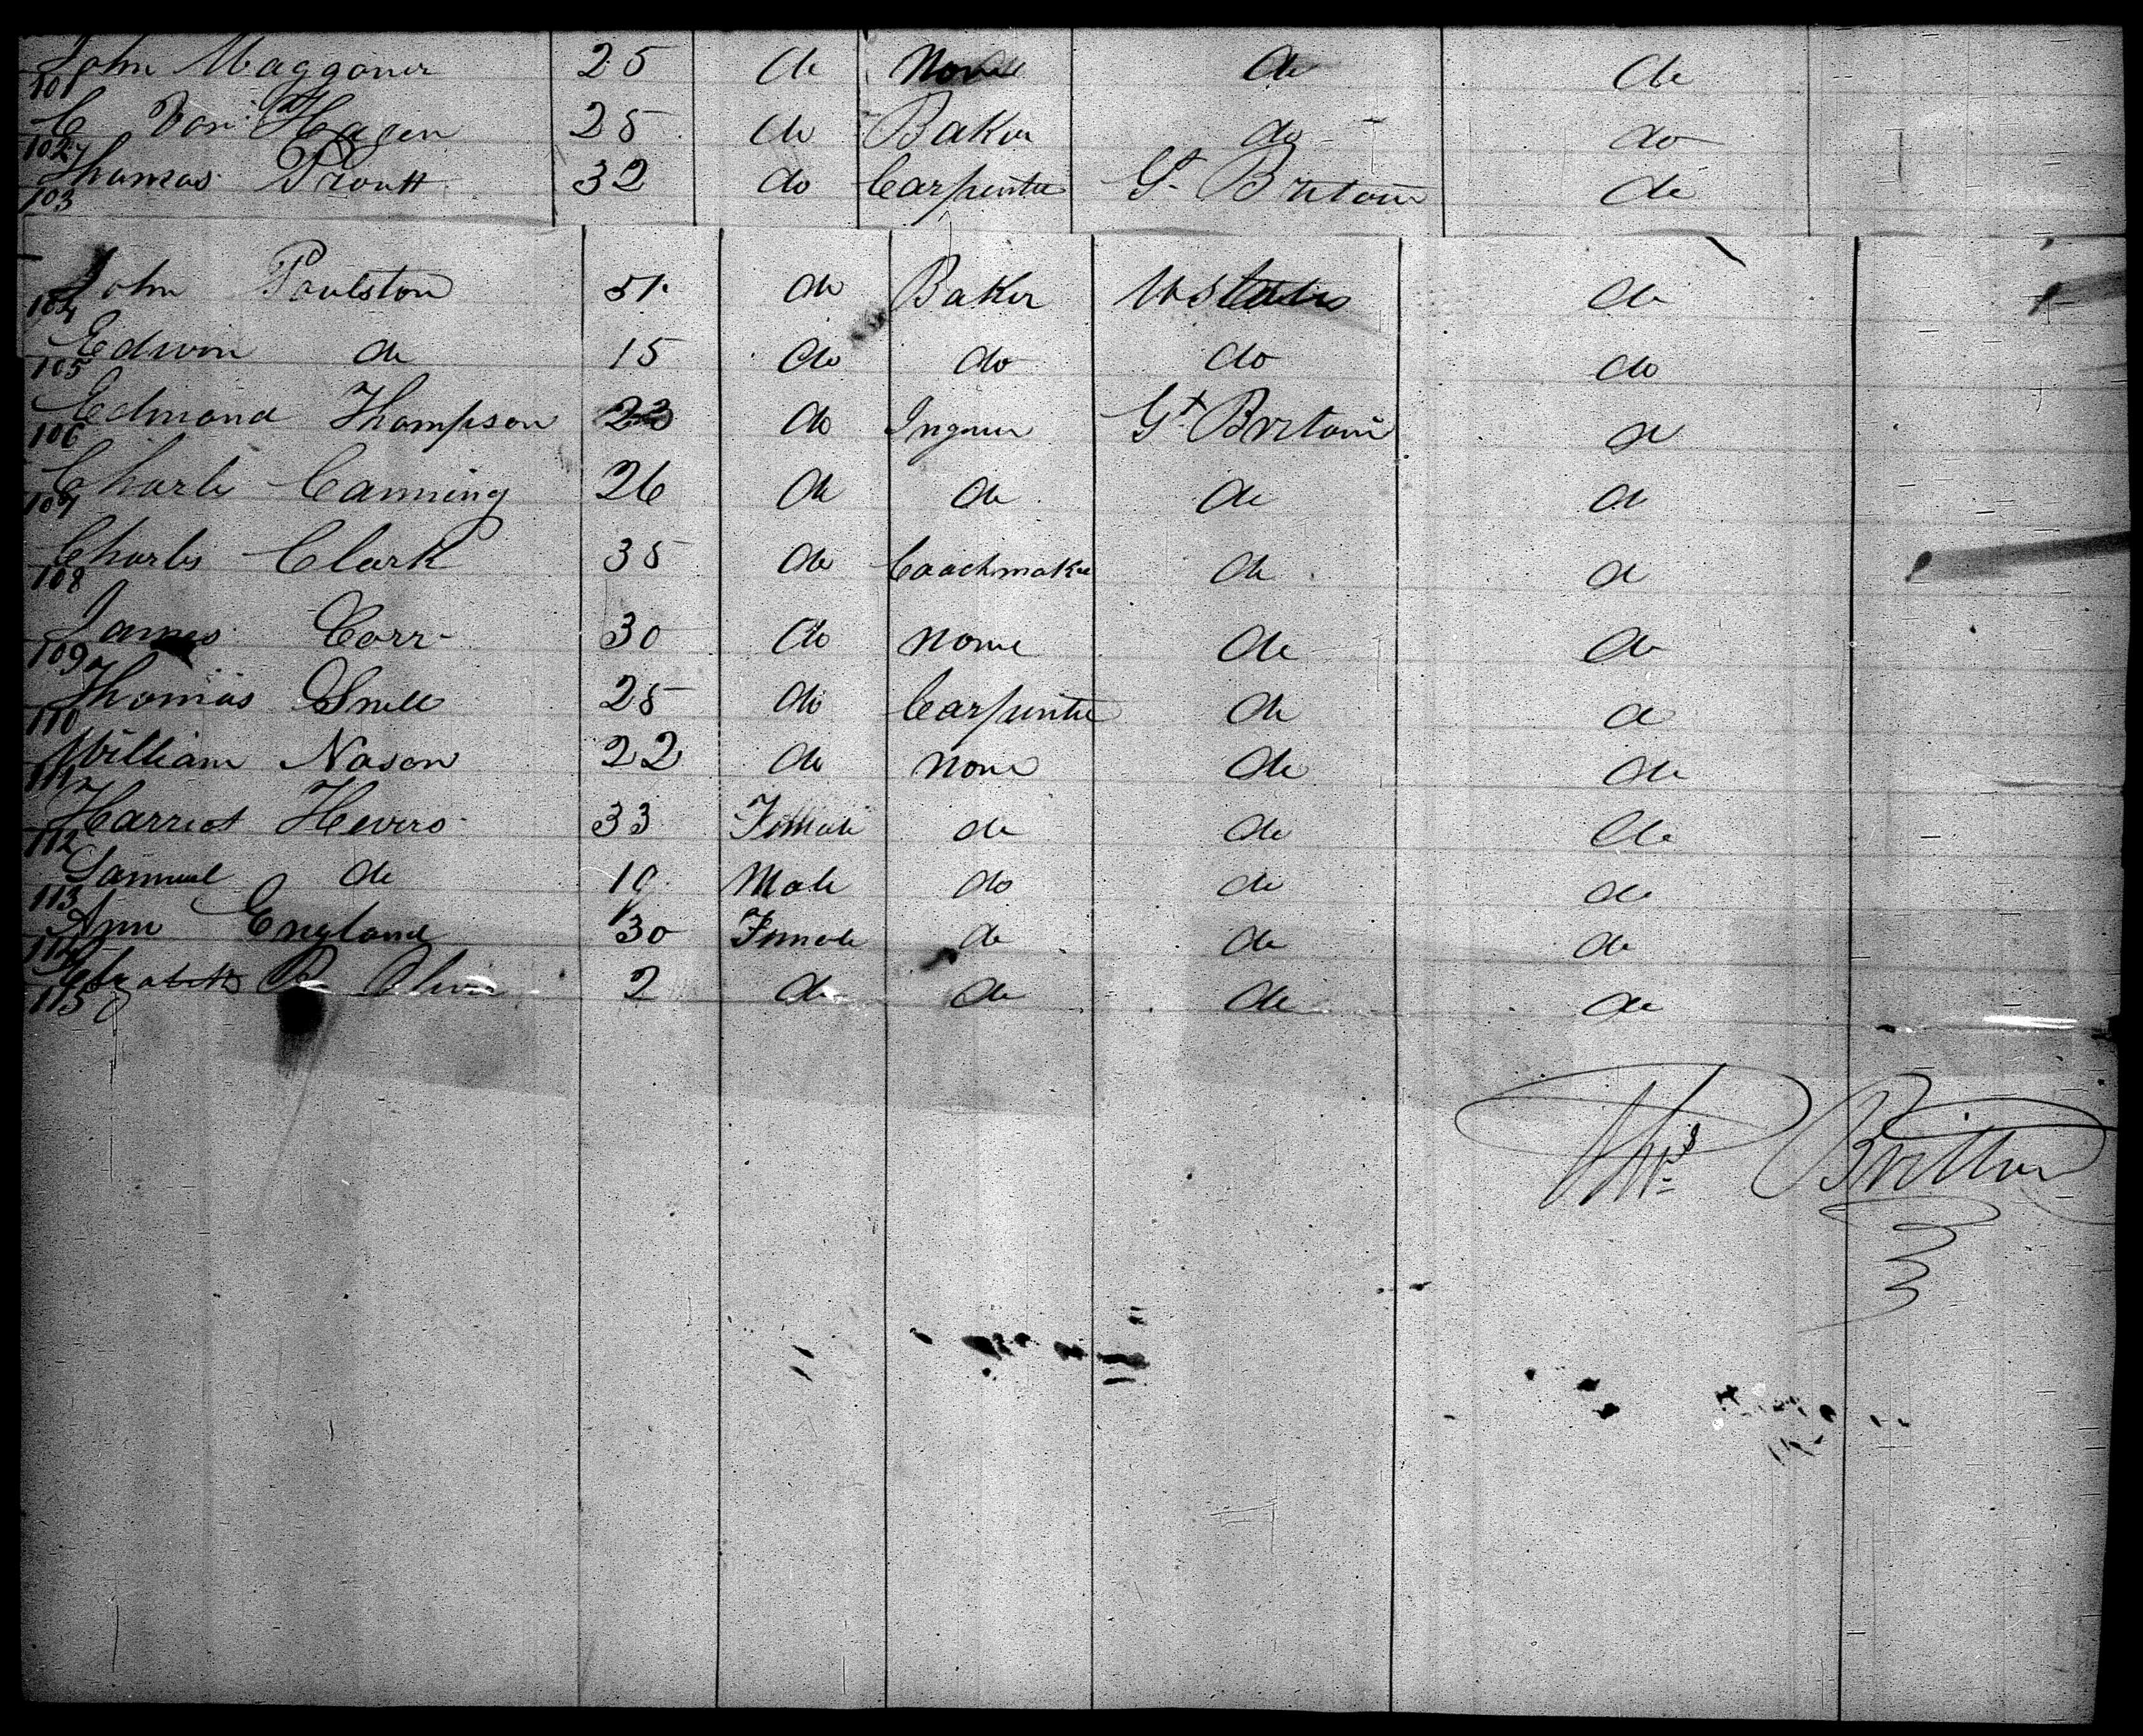 101 John Waggoner 25 do None do do
102 C Von Hagen 25 do Baker do do
103 Thomas Proutt 32 do Carpenter Gt Britain do
104 John Poulston 51 do Baker U States do
105 Edwin do 15 do do do do
106 Edmond Thompson 23 do Gt Britain do
107 Charls Canning 26 do do do do
108 Charls Clark 35 do Coachmaker do do
109 James Corr 30 do None do do
110 Thomas Snell 25 do Carpenter do do
111 William Nason 22 do None do do
112 Harriot Hevers 33 Female do do do
113 Samuel do 19 Male do do do
114 Ann England 30 Female do do do
115 2 do do do do
Thos Britton